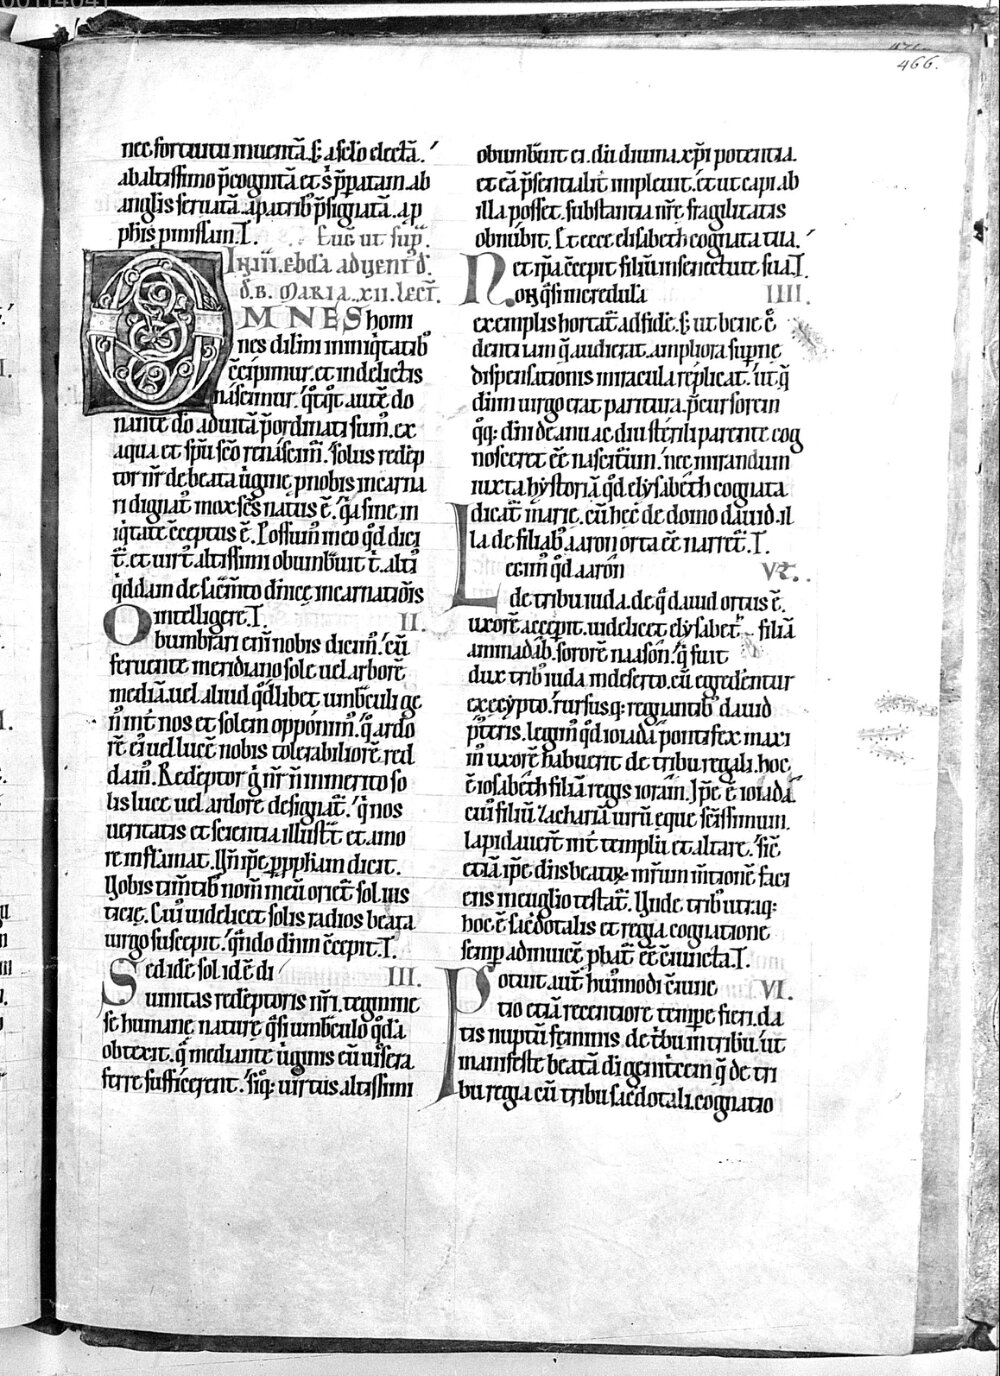 466.
nec fortuitu inuentā. s; a sc̄lo electā.
ab altissimo p̄cognitā et s' p̄paratam. ab
anglis seruatā. a patrib; p̄signatā. a p̱
ph̄is p̱missam. T. Euḡ ut sup̄.
IN .III. ebdā aduent' d'.
d' B. MARIA .XII. Lect̄.
OMNES homi
nes dilini iniq̇tatib;
c̄cipimur. et in delictis
nascimur. q̇tq̇t autē do
nante dō ad uitā p̄ordinati sum'. ex
aqua et sp̄u sc̄o renascim̄. Solus redēp
tor nr̄ de beata ūgine p̱ nobis incarna
ri dignat' mox sc̄s natus ē. q̄a sine in
iq̇tate c̄ceptus ē. Possum' in eo qd̄ dici
t̄. et uirt' altissimi obumb̄uit t̄. alti'
q̇ddam de sac̄mto d̄nicę incarnatiōis
intelligere. T. II.
Obumbrari eni nobis dicim'. cū
feruente meridiano sole uel arborē
mediā. uel aliud qd̄libet umb̄culi ge
n' int̄ nos et solem oppōnim'. q̇ ardo
rē ei' uel lucē nobis tolerabiliorē red
dam'. Redēptor g̊ nr̄ n̄ inmerito so
lis luce uel ardore designat̄. q̇ nos
ueritatis et scientia illust̄t et amo
re inflāmat. Vn̄ ip̄e p̱ p̱ph̄am dicit.
Vobis tim̄tib; nom̄ meū oriet̄ sol ius
ticię. Cui' uidelicet solis radios beata
uirgo suscepit. q̄ndo d̄nm c̄cepit. T.
Sed idē sol idē di III.
uinitas redēptoris nr̄i. tegmine
se humanę naturę q̄si umb̄culo qd̄ā
obtexit. q̊ mediante ūginis eū uiscera
ferre sufficerent. Sicq; uirtus altissimi
obumb̄uit ei. dū diuina xp̄i potentia.
et eā p̄sentialit̄ impleuit. et ut capi ab
illa posset. substantia nr̄ę fragilitatis
obnūbit. Et ecce elisabeth cognata tua.
et ip̄a c̄cepit filiū in senectute sua. T.
Non q̄si incredula IIII.
exemplis hortat̄ ad fidē. s; ut bene c̄
denti iam q̄ audierat. ampliora sup̱nę
dispensationis miracula replicat̄. ut q̄
d̄nm uirgo erat paritura. p̄cursorem
q̊q; d̄ni de anu ac diu sterili parente cog
nosceret eē nasciturū. nec mirandum
iuxta hystoriā qd̄ elysabeth cognata
dicat̄ marię. cū hec de domo dauid. il
la de filiab; aaron orta eē narret̄. T.
Legim' qd̄ aarōn V.
de tribu iuda. de q̄ dauid ortus ē.
uxorē accepit. uidelicet elysabet filiā
aminadāb. sororē naasōn. q̇ fuit
dux trib; iuda in deserto. cū egredēntur
ex egypto. rursusq; regnantib; dauid
p̱steris. legim' qd̄ ioiadā pontifex maxi
m' uxorē habuerit de tribu regali. hoc
ē iosabēth filiā regis iorām. Ip̄e ē ioiadā
cui' filiū zachariā uirū ęque sc̄issimum.
lapidauert̄ int̄ templū et altare. sic
etiā ip̄e dn̄s beatoꝝ mr̄um m̄tionē faci
ens in euglio testat̄. Vnde trib; utraq;
hoc ē sac̄dotalis et regia. cognatione
semp̱ ad inuicē p̱bat̄ eē c̄iuncta. T.
Potuit aut̄ hui'modi c̄iunc VI.
tio etiā recentiore tempe fieri. da
tis nuptū feminis de t̄bu in tribū. ut
manifeste beatā di genitcem q̄ de tri
bu regia cū tribu sac̄dotali. cognatio